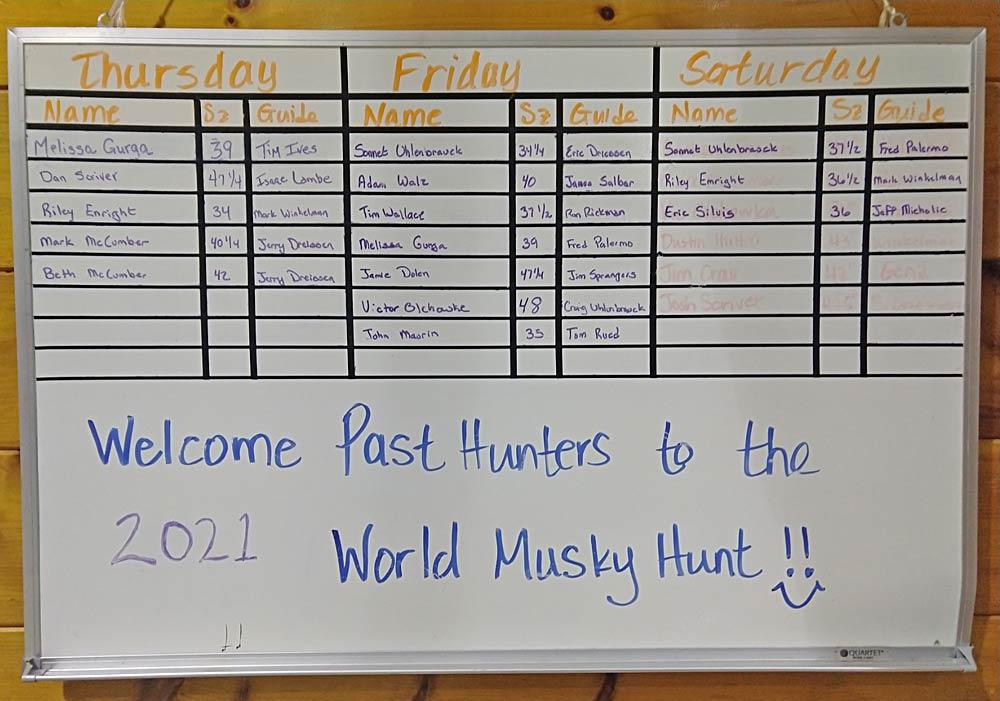 Thursday Friday Saturday
Name Sz Guide Name Sz Guide Name Sz Guide
Melissa Gurga 39 Tim Ives Sonnet Uhlenbrauck 34 1/4 Eric Driessen Sonnet Uhlenbrauck 37 1/2 Fred Palermo
Dan Scriver 47 1/4 Isaac Lambe Adam Walz 40 Salbar Riley Emright 36 1/2 Mark Winkelman
Riley Enright 34 Mark Winkelman Tim Wallace 37 1/2 Ron Rickman Eric Silvis 36 Jeff Michelic
Mark McCumber 40 1/4 Jerry Dreissen Melissa Gurga 39 Fred Palermo Dustin 43 Winkelman
Beth McCumber 42 Jerry Dreissen Jamie Dolen 47 1/4 Jim Sprangers Jim
Victor 48 Craig Uhlenbrauck Josh Scriver
John Maurin 35 Tom Rued
Welcome Past Hunters to the
2021 World Musky Hunt !!
QUARTET